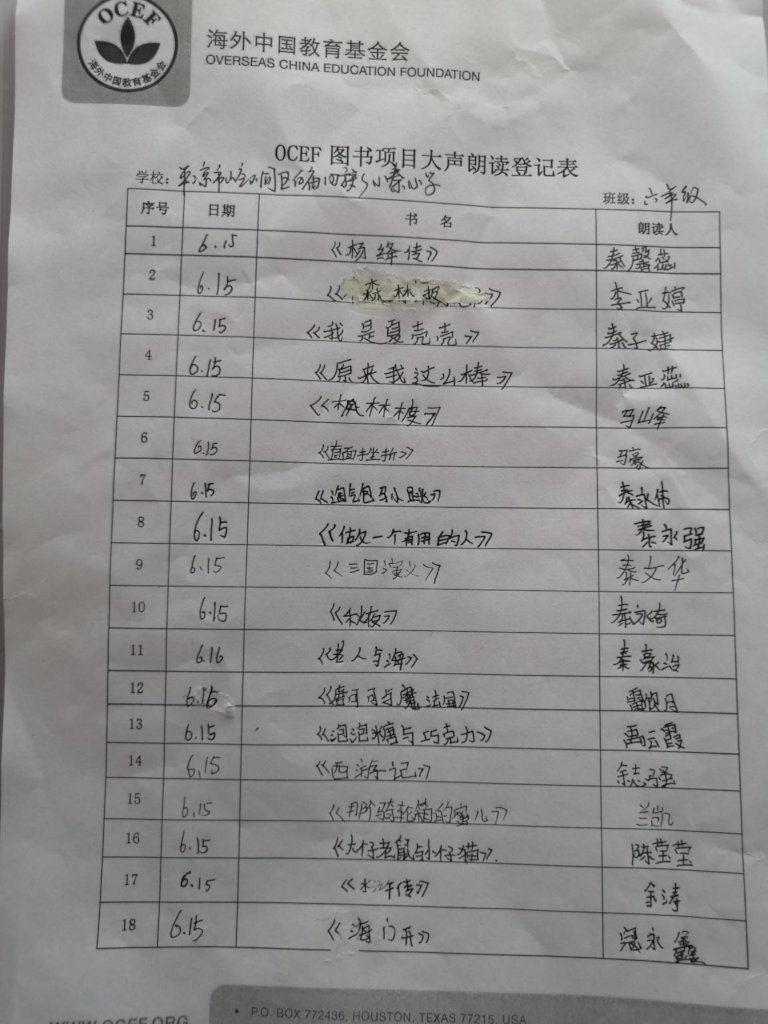 OCEF
海外中国教育基金会
海外中国教育基金会
OVERSEAS CHINA EDUCATION FOUNDATION
OCEF 图书项目大声朗读登记表
学校： 小学
班级：六年级
序号 日期 书 名 朗读人
1 6.15 《杨绛传》 秦馨蕊
2 6.15 《森林 》 李亚婷
3 6.15 《我是夏壳壳》 秦子婕
4 6.15 《原来我过么棒》 秦亚蕊
5 6.15 《枫林渡》 马山峰
6 6.15 《直面挫折》 马豪
7 6.15 《淘气包马小跳》 秦永伟
8 6.15 《做又一个有用的人》 秦永强
9 6.15 《三国演义》 秦文华
10 6.15 《秋夜》 秦永奇
11 6.16 《老人与海》 秦豪治
12 6.15 可可与魔法 月
13 6.15 《泡泡糖与巧克力》 禹云霞
14 6.15 《西游记》 余志强
15 6.15 骑轮箱的蜜儿》 兰凯
16 6.15 《大仔老鼠与小仔猫》. 陈莹莹
17 6.15 《水浒传》 余涛
18 6.15 《海门开》 寇永鑫
WWW.OCEF.ORG
• P.O. BOX 772436, HOUSTON, TEXAS 77215, USA